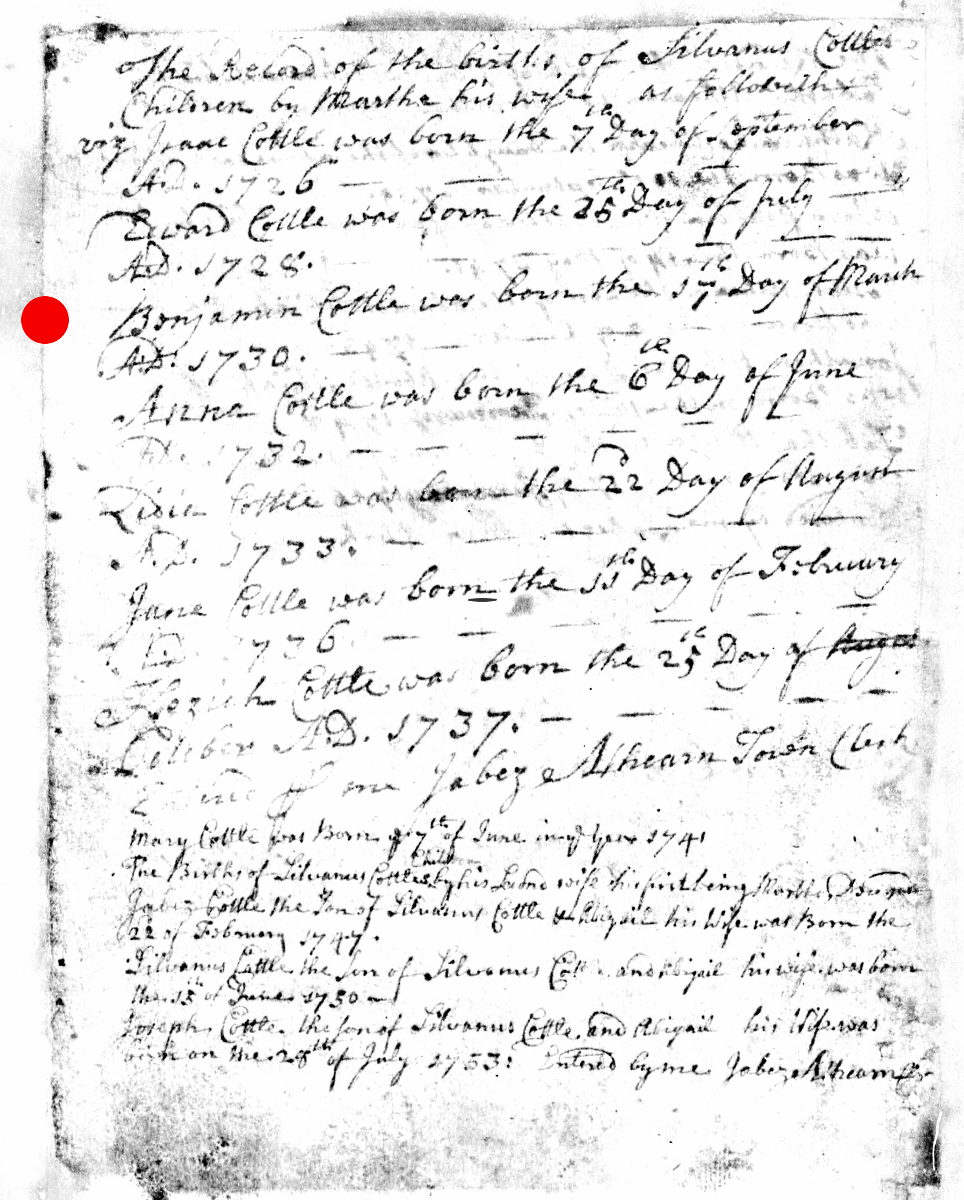 The Record of the births of Silvanus Cottles
Children by Martha his wife as followeth
viz Isaac Cottle was born the 7th Day of September
A.D. 1726
Edward Cottle was born the 25th Day of July
A.D. 1728.
Benjamin Cottle was born the 17th Day of March
A.D. 1730.
Anna Cottle was born the 6th Day of June
A.D. 1732.
Lidia Cottle was born the 22d Day of August
A.D. 1733.
Jane Cottle was born the 11th Day of Februury
A.D. 1736
Cottle was born the 25th Day of
October A.D. 1737.
Entred me Jabez Athearn Town Clerk
Mary Cottle was Born ye 7th of June in ye year 1741
The Births of Silvanus Cottles Children by his second wife his first being Martha
Jabez Cottle the Son of Silvanus Cottle & Abigail his Wife was Born the
22 of February 1747.
Silvanus Cottle the Son of Silvanus Cottle and Abigail his wife was born
the 15th of June 1750
Joseph Cottle the son of Silvanus Cottle and Abigail his Wife was
born on the 28th of July 1753: Entered by me Jabez Athearn